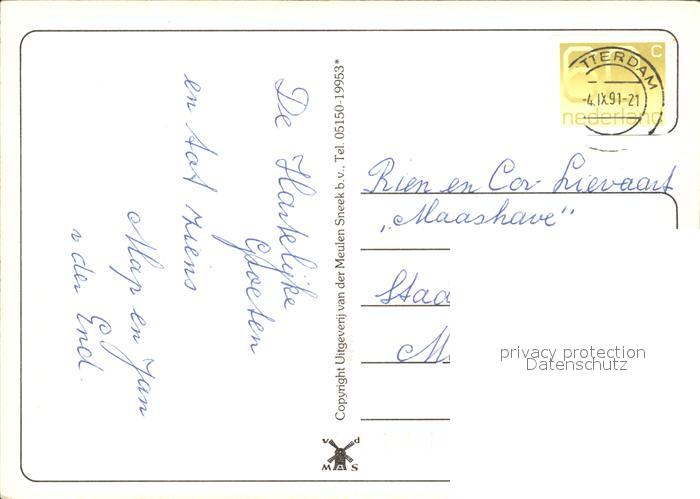 De Hartelijke
Groeten
en tot ziens
Map en Jan
v der End.
Copyright Uitgeverij van der Meulen Sneek b.v., Tel. 05150-19953*
v d
M A S
p
C
nederland
TTERDAM
-4.IX.91-21
Rien en Cor Lievaart
„Maashave"
Staa
M
privacy protection
Datenschutz